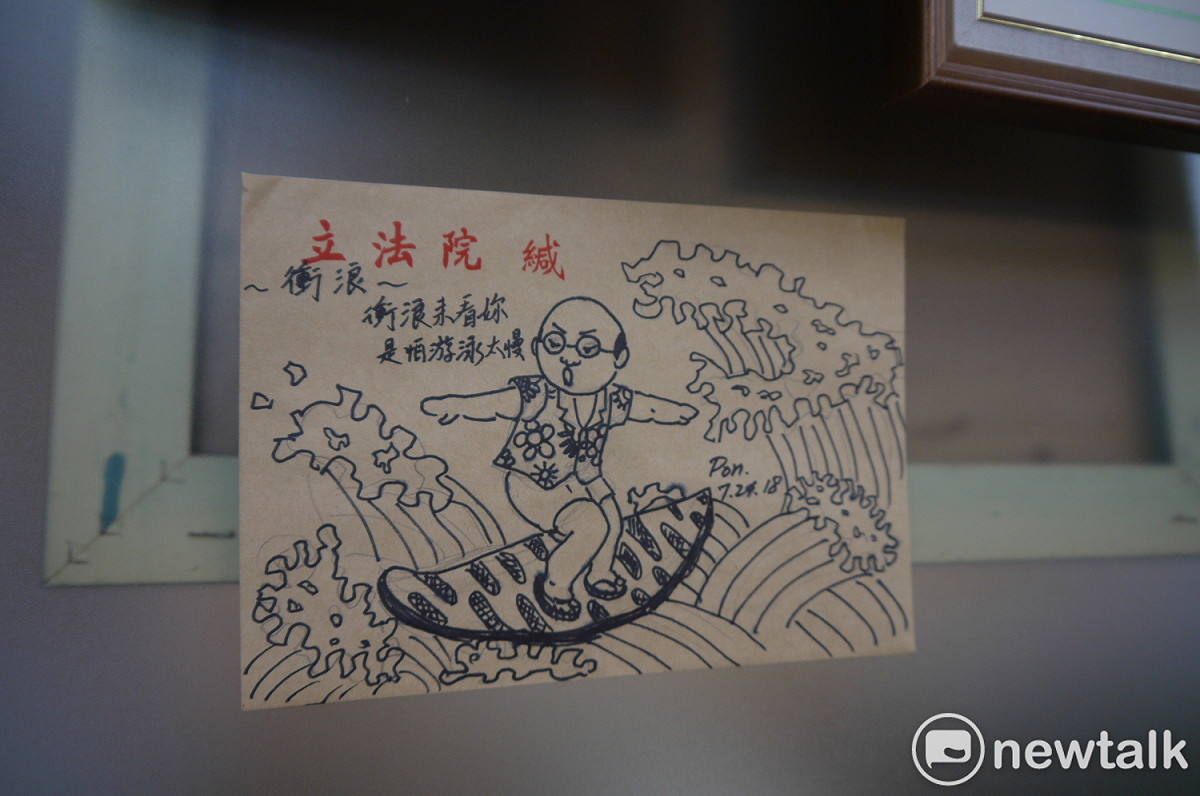 立法院 緘
~衝浪~
衝浪來看妳
是怕游泳太慢
Pon.
7.24.18
newtalk